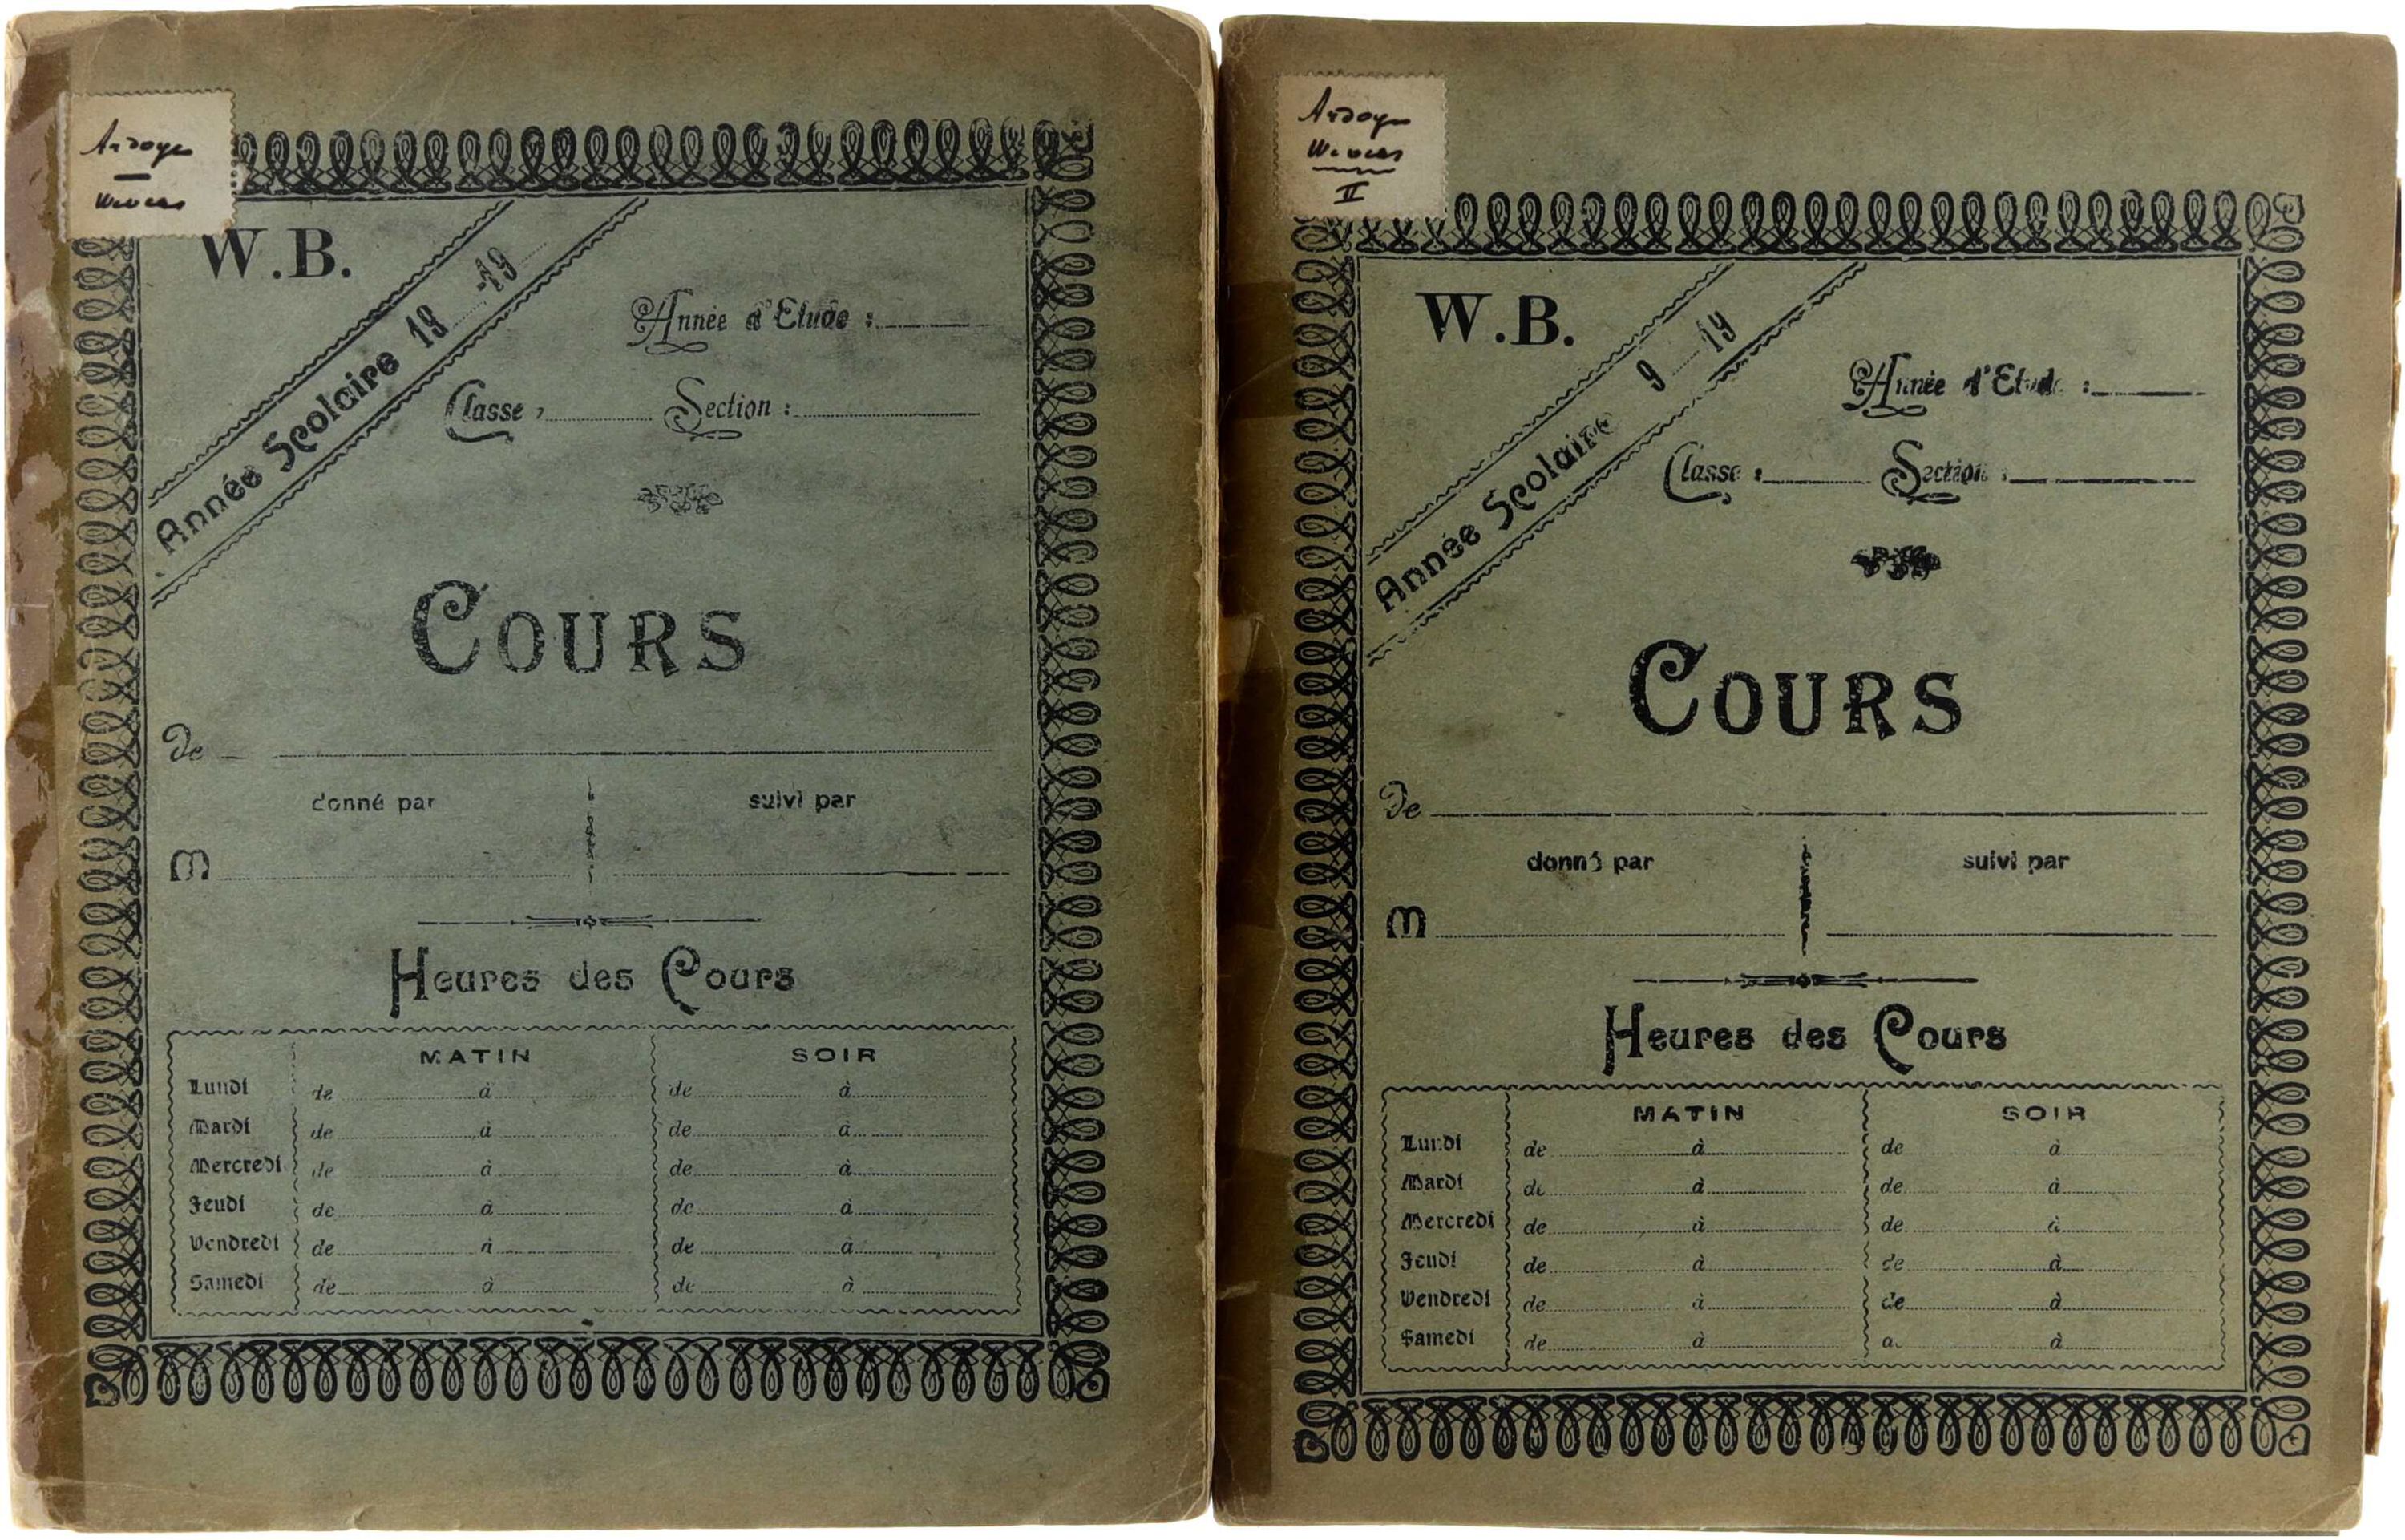 Ardoye
W.B.
Année Scolaire 19 -19
Année d'Etude :
Classe : Section :
COURS
De
donné par suivi par
M
Heures des Cours
MATIN SOIR
Lundi de à de à
Mardi de à de à
Mercredi de à de à
Jeudi de à de à
Vendredi de à de à
Samedi de à de à
Ardoye
II
W.B.
Année Scolaire 9 19
Année d'Etude :
Classe : Section :
COURS
De
donné par suivi par
M
Heures des Cours
MATIN SOIR
Lundi de à de à
Mardi de à de à
Mercredi de à de à
Jeudi de à de à
Vendredi de à de à
Samedi de à à